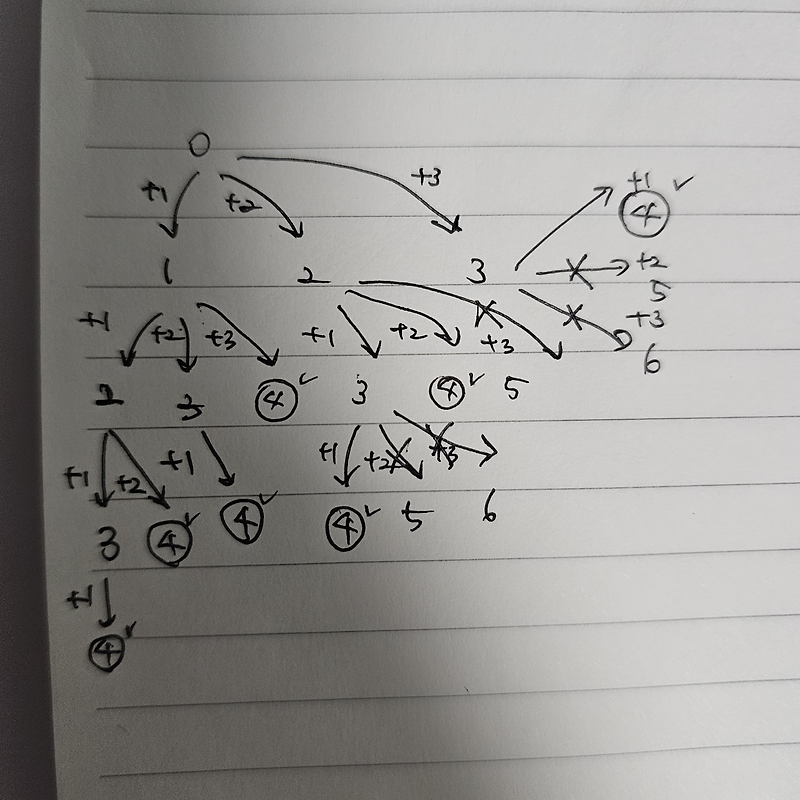 0
+1 +2 +3 +1 ✓
④
1 2 3 +2
5
+1 +2 +3 +1 +2 +3 +3
6
2 3 ④✓ 3 ④✓ 5
+1 +2 +1 +1 +2 +3
3 ④✓ ④✓ ④✓ 5 6
+1
④✓